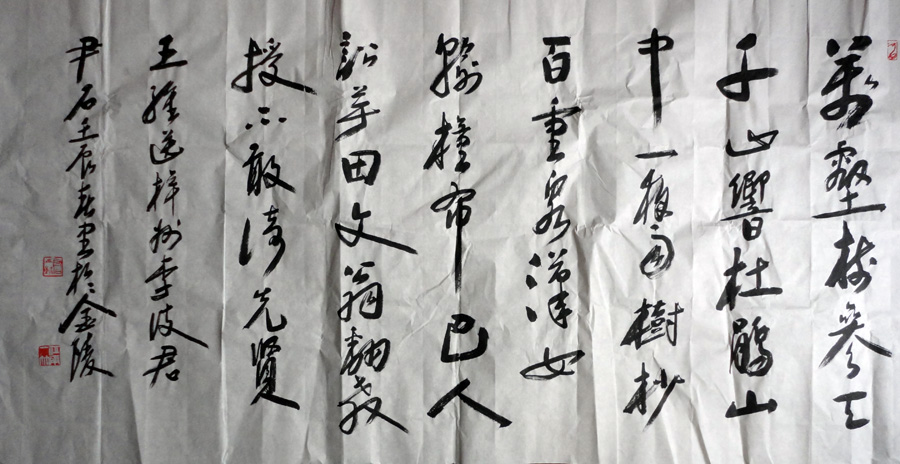 萬壑樹參天
千山響杜鵑山
中一夜雨樹杪
百重泉漢女
輸橦布巴人
訟芋田文翁翻教
授不敢倚先賢
王維送梓州李使君
尹石壬辰春書於金陵